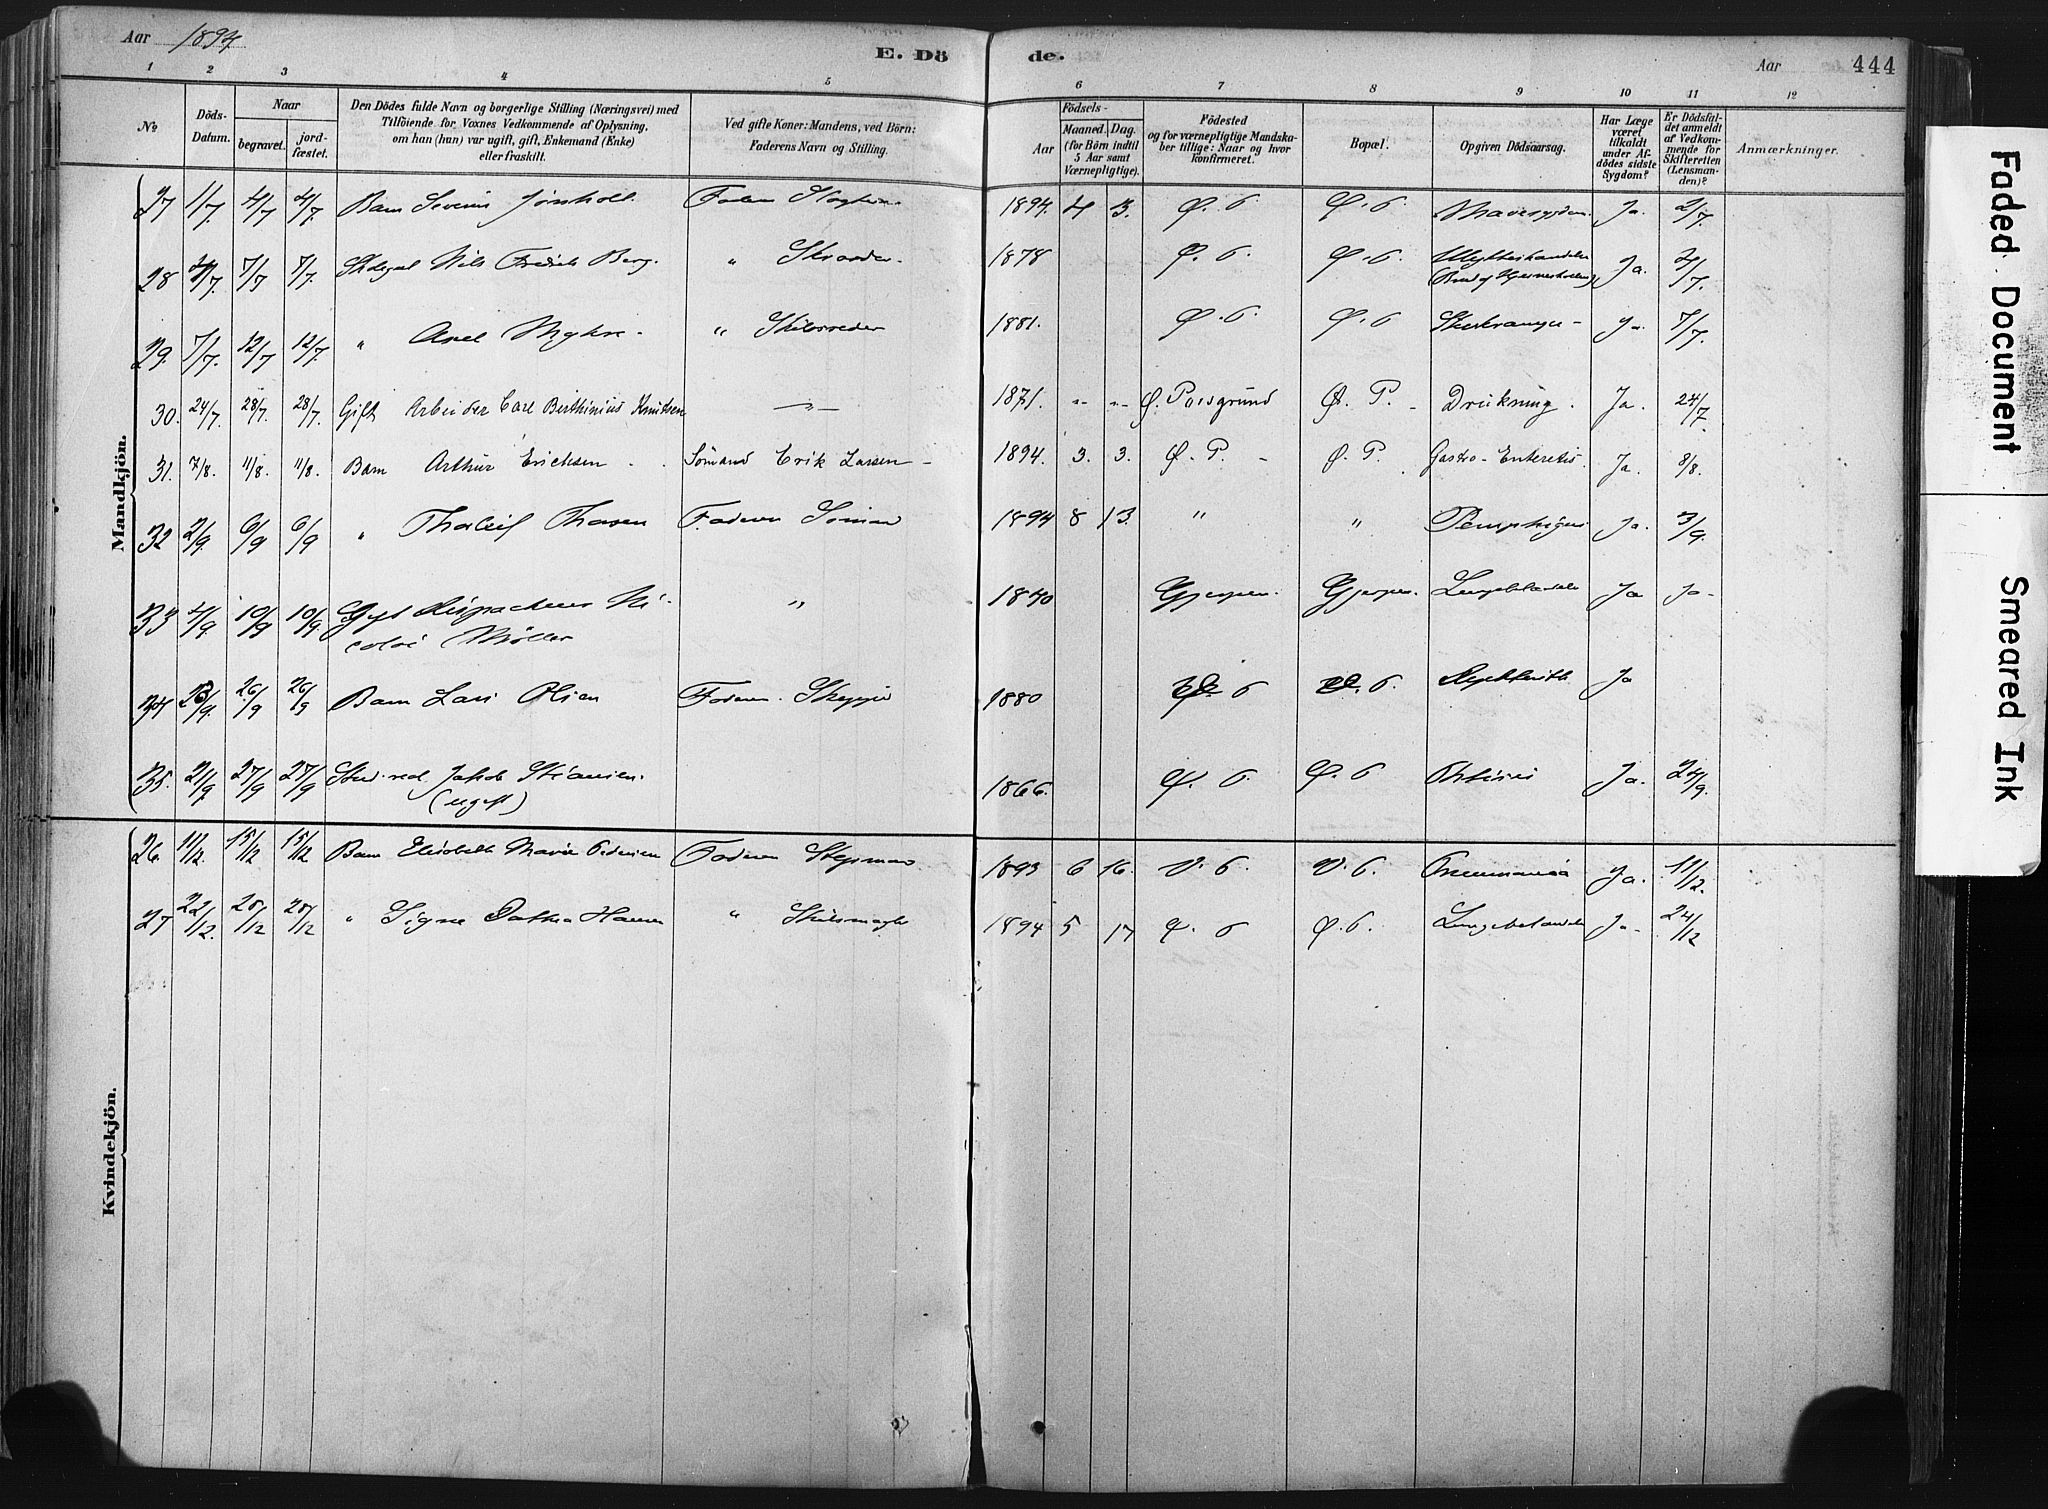 Aar 1894
E. Dö
de.
Aar
444
1 2 3 4 5 6 7 8 9 10 11 12
No
Döds-Datum.
Naar
begravet.
jordfæstet.
Den Dödes fulde Navn og borgerlige Stilling (Næringsvei) med
Tilföiende for Voxnes Vedkommende af Oplysning,
om han (hun) var ugift, gift, Enkemand (Enke)
eller fraskilt.
Ved gifte Koner: Mandens, ved Börn:
Faderens Navn og Stilling.
Födsels-
Aar
Maaned. Dag.
(for Börn indtil
5 Aar samt
Værnepligtige).
Födested
og for værnepligtige Mandska-
ber tillige: Naar og hvor
konfirmeret.
Bopæl.
Opgiven Dödsaarsag.
Har Læge
været
tilkaldt
under Af-
dödes sidste
Sygdom?
Er Dödsfal-
det anmeldt
af Vedkom-
mende for
Skifteretten
(Lensman-
den)?
Anmærkninger.
Mandkjön.
27 1/7 4/7 4/7 Barn Severin 1894. 4 3. Ø. P. Ø. P. Mavesygdom Ja. 2/7.
28 7/7 7/7. Nils Fredrik Berg. " Skrædder 1878 Ø. P. Ø. P. Ja.
29. 7/7. 12/7 12/7. " Axel Myhre. " Skibsreder 1881. Ø. P. Ø. P Ja. 7/7.
30. 24/7. 28/7. 28/7. Gift Arbeider Carl Berthinius Knutsen —"— 1871. " " Ø. Porsgrund Ø. P. Drukning. Ja. 24/7.
31. 7/8. 11/8. 11/8. Barn Arthur Erichsen Sömand Erik Larsen 1894. 3. 3. Ø. P. Ø. P. Gastro-Enteretis. Ja. 8/8.
32 2/9. 6/9 6/9 " Thorleif Thorsen Faderen Sömand 1894 8 13. " " Pemphigus Ja. 3/9.
33 4/9. 10/9 10/9. Gift Ni-
colai Möller " 1840 Gjerpen. Gjerpen. Lungebetændelse Ja Ja
34 26/9 26/9 Barn Lars Olsen Faderen Skipper 1880 Ø. P Ø. P. Ja
35. 21/9 27/9 27/9 Stud. Jakob
(ugift) 1866. Ø. P. Ø. P Phtisis Ja. 24/9.
Kvindekjön.
26. 11/12. 15/12 15/12 Barn Elisabeth Marie Pedersen Faderen 1893 6 16. V. P. V. P. Pneumonia Ja. 11/12.
27 22/12. 28/12 28/12 " Signe Hansen " 1894 5 17 Ø. P Ø. P. Lungebetændelse Ja 24/12
Faded Document
Smeared Ink